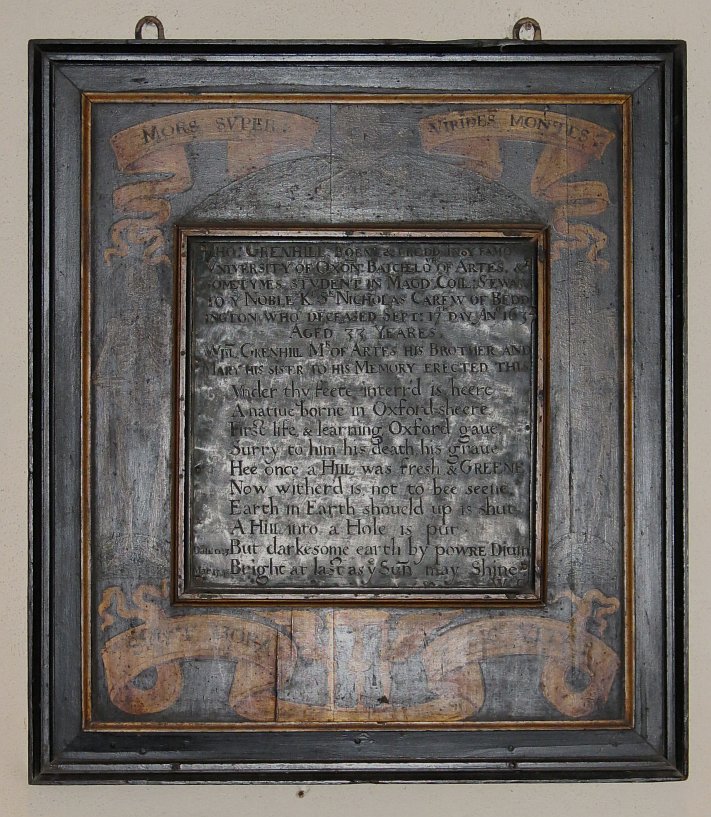 MORS SVPER.
VIRIDES MONTES
THO: GRENHILL BORNE & BREDD
VNIVERSITY OF OXON: BATCHELOR OF ARTES, &
SOMTYMES STVDENT IN MAGD: COLL: STEWARD
TO Yͤ NOBLE K. Sᴿ NICHOLAS CAREW OF BEDD
INGTON, WHO DECEASED SEPT: 17ᵗʰ DAY AN° 163
AGED 33 YEARES.
WM GRENHILL Mᴿ OF ARTES HIS BROTHER AND
MARY HIS SISTER TO HIS MEMORY ERECTED THIS
Vnder thy feete interr'd is heere
A natiue borne in Oxford-sheere
First life, & learning Oxford gaue
Surry to him his death, his graue
Hee once a HILL was fresh & GREENE
Now wither'd is not to bee seene.
Earth in Earth shouel'd up is shut
A HILL into a Hole is put
But darkesome earth by powre Diuin
Bright at last as yͤ Sun may Shine